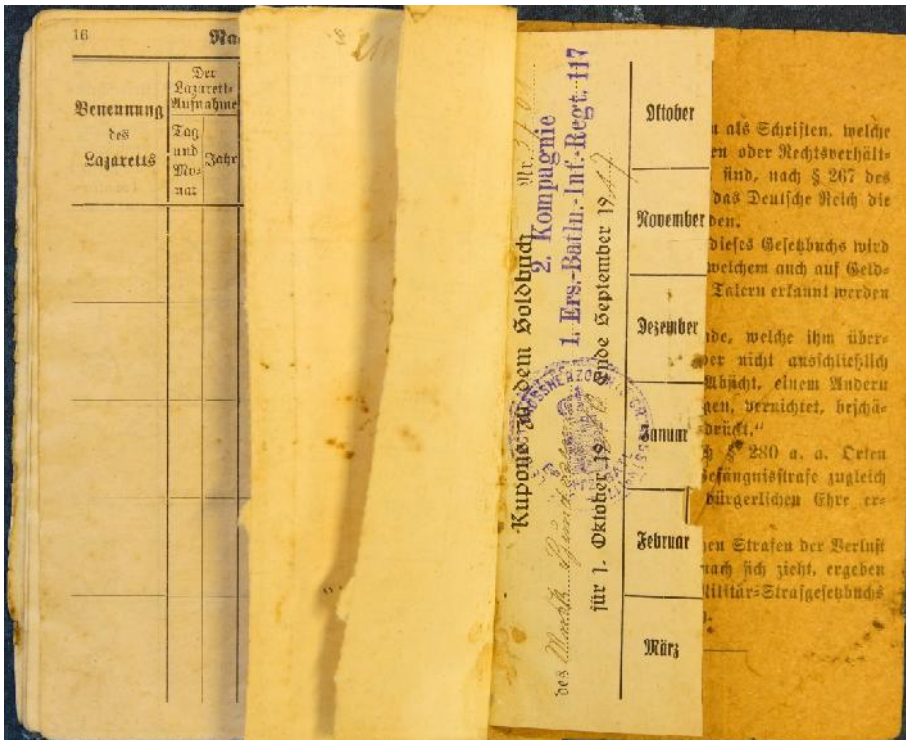 16
Der
Lazarett-
Aufnahme
Benennung
des
Lazaretts
Tag
und
Mo-
nat
Jahr
Kupons zu dem Soldbuch Nr.
2. Kompagnie
1. Ers.-Batln.-Inf.-Regt. 117
des
für 1. Oktober 19 Ende September 19
Oktober
November
Dezember
Januar
Februar
März
n als Schriften, welche
en oder Rechtsverhält-
sind, nach § 267 des
das Deutsche Reich die
den.
dieses Gesetzbuchs wird
welchem auch auf Geld-
Talern erkannt werden
nde, welche ihm über-
ber nicht ausschließlich
Absicht, einem Andern
gen, vernichtet, beschä-
drückt.“
§ 280 a. a. Orten
Gefängnisstrafe zugleich
bürgerlichen Ehre er-
zen Strafen der Verlust
nach sich zieht, ergeben
Militär-Strafgesetzbuchs